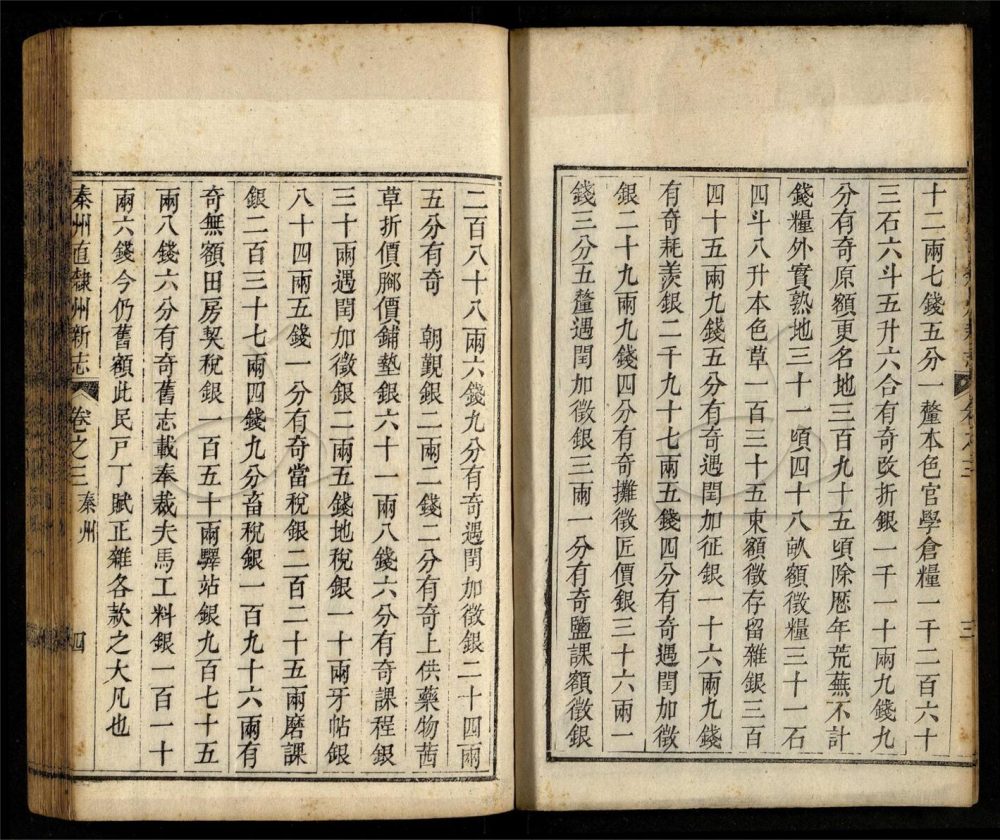 十二兩七錢五分一釐本色官學倉糧一千二百六十
三石六斗五升六合有奇改折銀一千一十兩九錢九
分有奇原額更名地三百九十五頃除歷年荒蕪不計
錢糧外實熟地三十一頃四十八畝額徵糧三十一石
四斗八升本色草一百三十五束額徵存留雜銀三百
四十五兩九錢五分有奇遇閏加征銀一十六兩九錢
有奇耗羨銀二千九十七兩五錢四分有奇遇閏加徵
銀二十九兩九錢四分有奇攤徵匠價銀三十六兩一
錢三分五釐遇閏加徵銀三兩一分有奇鹽課額徵銀
二百八十八兩六錢九分有奇遇閏加徵銀二十四兩
五分有奇 朝覲銀二兩二錢二分有奇上供藥物茜
草折價腳價鋪墊銀六十一兩八錢六分有奇課程銀
三十兩遇閏加徵銀二兩五錢地稅銀一十兩牙帖銀
八十四兩五錢一分有奇當稅銀二百二十五兩磨課
銀二百三十七兩四錢九分畜稅銀一百九十六兩有
奇無額田房契稅銀一百五十兩驛站銀九百七十五
兩八錢六分有奇舊志載奉裁夫馬工料銀一百一十
兩六錢今仍舊額此民戸丁賦正雜各款之大凡也
秦州直隸州新志 卷之三 秦州 四